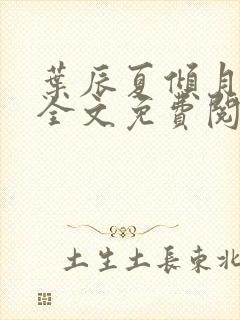 葉辰夏傾月
全文免費閱
土生土長東北